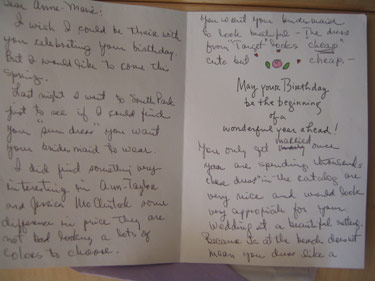 Dear Anne Marie:
I wish I could be their with
you celebrating your birthday.
But I would like to come this
Spring.
Last night I went to South Park
just to see if I could find
your "sun dress" you want
your bridesmaid to wear.
I did find something very
interesting in Ann-Taylor
and Jessica McClintok some
difference in price they are
not bad looking a lots of
colors to choose.
You want your bridesmaid
to look beautiful - The dress
from "Target" looks cheap
cute but cheap. -
May your Birthday
be the beginning
of a
wonderful year ahead!
You only get married once
you are spending thousands
these dress in the catalog are
very nice and would look
very appropiate for your
wedding at a beautiful setting.
Because is at the beach doesnt
mean you dress like a